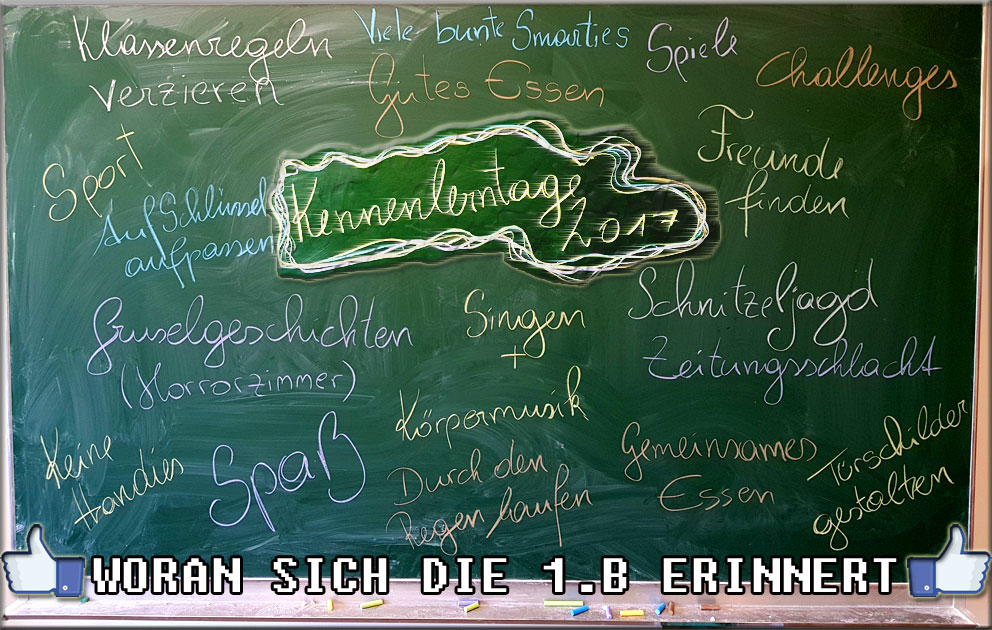 Klassenregeln
verzieren
Viele bunte Smarties
Gutes Essen
Spiele
Challenges
Sport
Auf Schlüssel
aufpassen
Kennenlerntage
2017
Freunde
finden
Gruselgeschichten
(Horrorzimmer)
Singen
+
Körpermusik
Schnitzeljagd
Zeitungsschlacht
Keine
Handies
Spaß
Durch den
Regen laufen
Gemeinsames
Essen
Türschilder
gestalten
WORAN SICH DIE 1.B ERINNERT